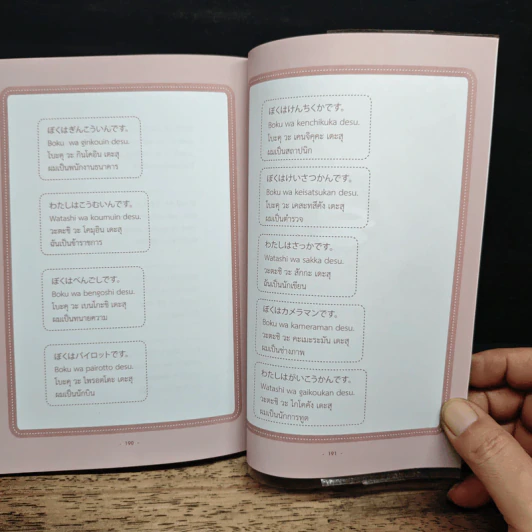 ぼくはぎんこういんです。
Boku wa ginkouin desu.
โบะคุ วะ กินโคอิน เดะสุ
ผมเป็นพนักงานธนาคาร
わたしはこうむいんです。
Watashi wa koumuin desu.
วะตะชิ วะ โคมุอิน เดะสุ
ฉันเป็นข้าราชการ
ぼくはべんごしです。
Boku wa bengoshi desu.
โบะคุ วะ เบนโกะชิ เดะสุ
ผมเป็นทนายความ
ぼくはパイロットです。
Boku wa pairotto desu.
โบะคุ วะ ไพรอตโตะ เดะสุ
ผมเป็นนักบิน
- 190 -
ぼくはけんちくかです。
Boku wa kenchikuka desu.
โบะคุ วะ เคนจิคุคะ เดะสุ
ผมเป็นสถาปนิก
ぼくはけいさつかんです。
Boku wa keisatsukan desu.
โบะคุ วะ เคสะทสึคัง เดะสุ
ผมเป็นตำรวจ
わたしはさっかです。
Watashi wa sakka desu.
วะตะชิ วะ สักกะ เดะสุ
ฉันเป็นนักเขียน
ぼくはカメラマンです。
Boku wa kameraman desu.
วะตะชิ วะ คะเมะระมัน เดะสุ
ผมเป็นช่างภาพ
わたしはがいこうかんです。
Watashi wa gaikoukan desu.
วะตะชิ วะ ไกโคคัง เดะสุ
ผมเป็นนักการทูต
- 191 -